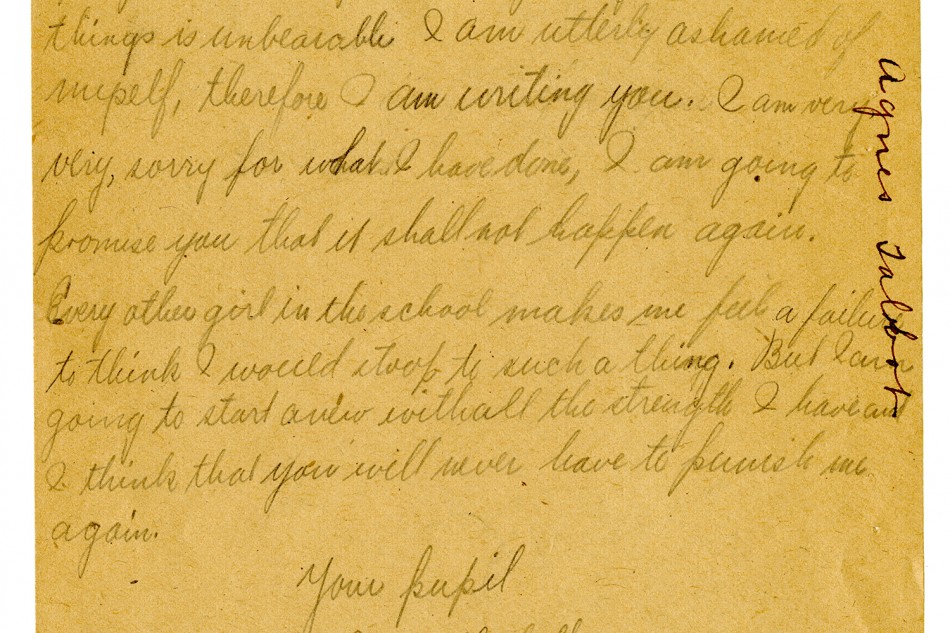 things is unbearable I am utterly ashamed of
myself, therefore I am writing you. I am very
very, sorry for what I have done, I am going to
promise you that it shall not happen again.
Every other girl in the school makes me feel a failure
to think I would stoop to such a thing. But I am
going to start anew with all the strength I have and
I think that you will never have to punish me
again.
Your pupil
Agnes Talbot